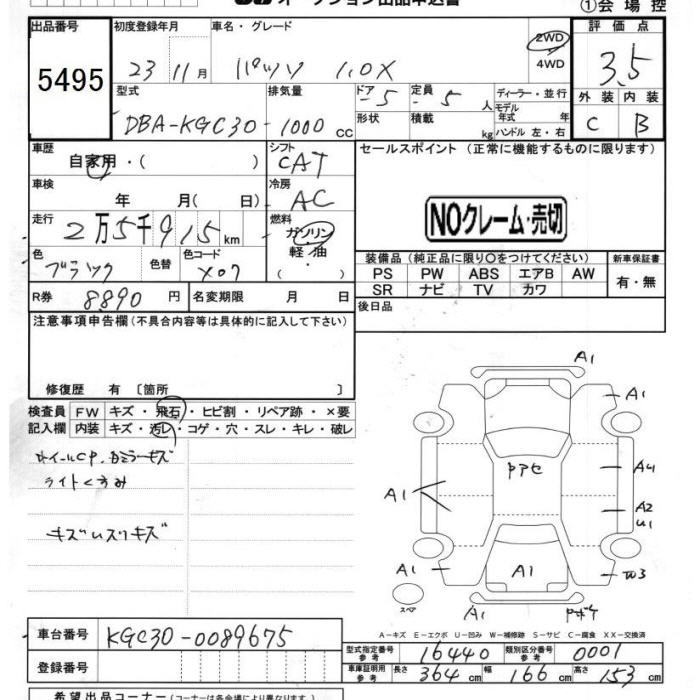 オークション出品申込書
①会場控
出品番号
5495
初度登録年月
23 11月
車名・グレード
パッソ 1.0X
2WD
4WD
評価点
3.5
外装 内装
C B
型式
DBA-KGC30-
排気量
1000 CC
ドア 5
形状
定員 5 人
積載 kg
ディーラー・並行
モデル年式 年
ハンドル 左・右
車歴
自家用・( )
シフト
CAT
車検
年 月( 日)
冷房
AC
走行
2万5千915km
燃料
ガソリン
軽・油
・( )
色
ブラック
色替
色コード
X07
R券
8890円
名変期限 月 日
セールスポイント (正常に機能するものに限ります)
NOクレーム・売切
装備品 (純正品に限り○をつけてください)
新車保証書
PS PW ABS エアB AW
SR ナビ TV カワ
有・無
後日品
注意事項申告欄(不具合内容等は具体的に記入して下さい)
修復歴 有 〔箇所 〕
検査員記入欄
FW キズ・飛石・ヒビ割・リペア跡・×要
内装 キズ・汚レ・コゲ・穴・スレ・キレ・破レ
ホイールCP カミラーキズ
ライトくすみ
キズUスリキズ
A1
A1
A4
A2
U1
A1
A1
A1
A1
スペア
A-キズ E-エクボ U-凹み W-補修跡 S-サビ C-腐食 XX-交換済
車台番号
KGC30-0089675
登録番号
型式指定番号 参考
16440
類別区分番号 参考
0001
車庫証明用 参考
長さ 364cm 幅 166cm 高さ 153cm
希望出品コーナー(コーナーは各会場により異なります